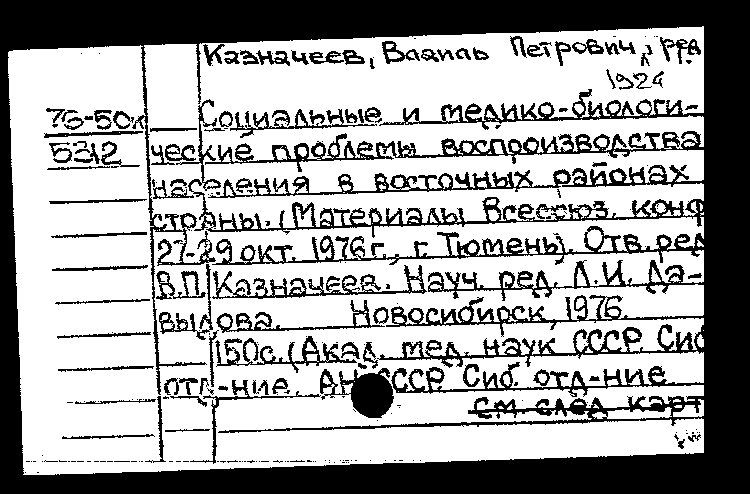 Казначеев, Влаиль Петрович, ред
1924
76-50к Социальные и медико-биологи-
5312 ческие проблемы воспроизводства
населения в восточных районах
страны. (Материалы Всесоюз. конф
27-29 окт. 1976 г., г. Тюмень). Отв. ред
В.П. Казначеев. Науч. ред. Л.И. Да-
выдова. Новосибирск, 1976.
150с. (Акад. мед. наук СССР. Сиб
отд-ние. АН СССР. Сиб. отд-ние
См. след карт